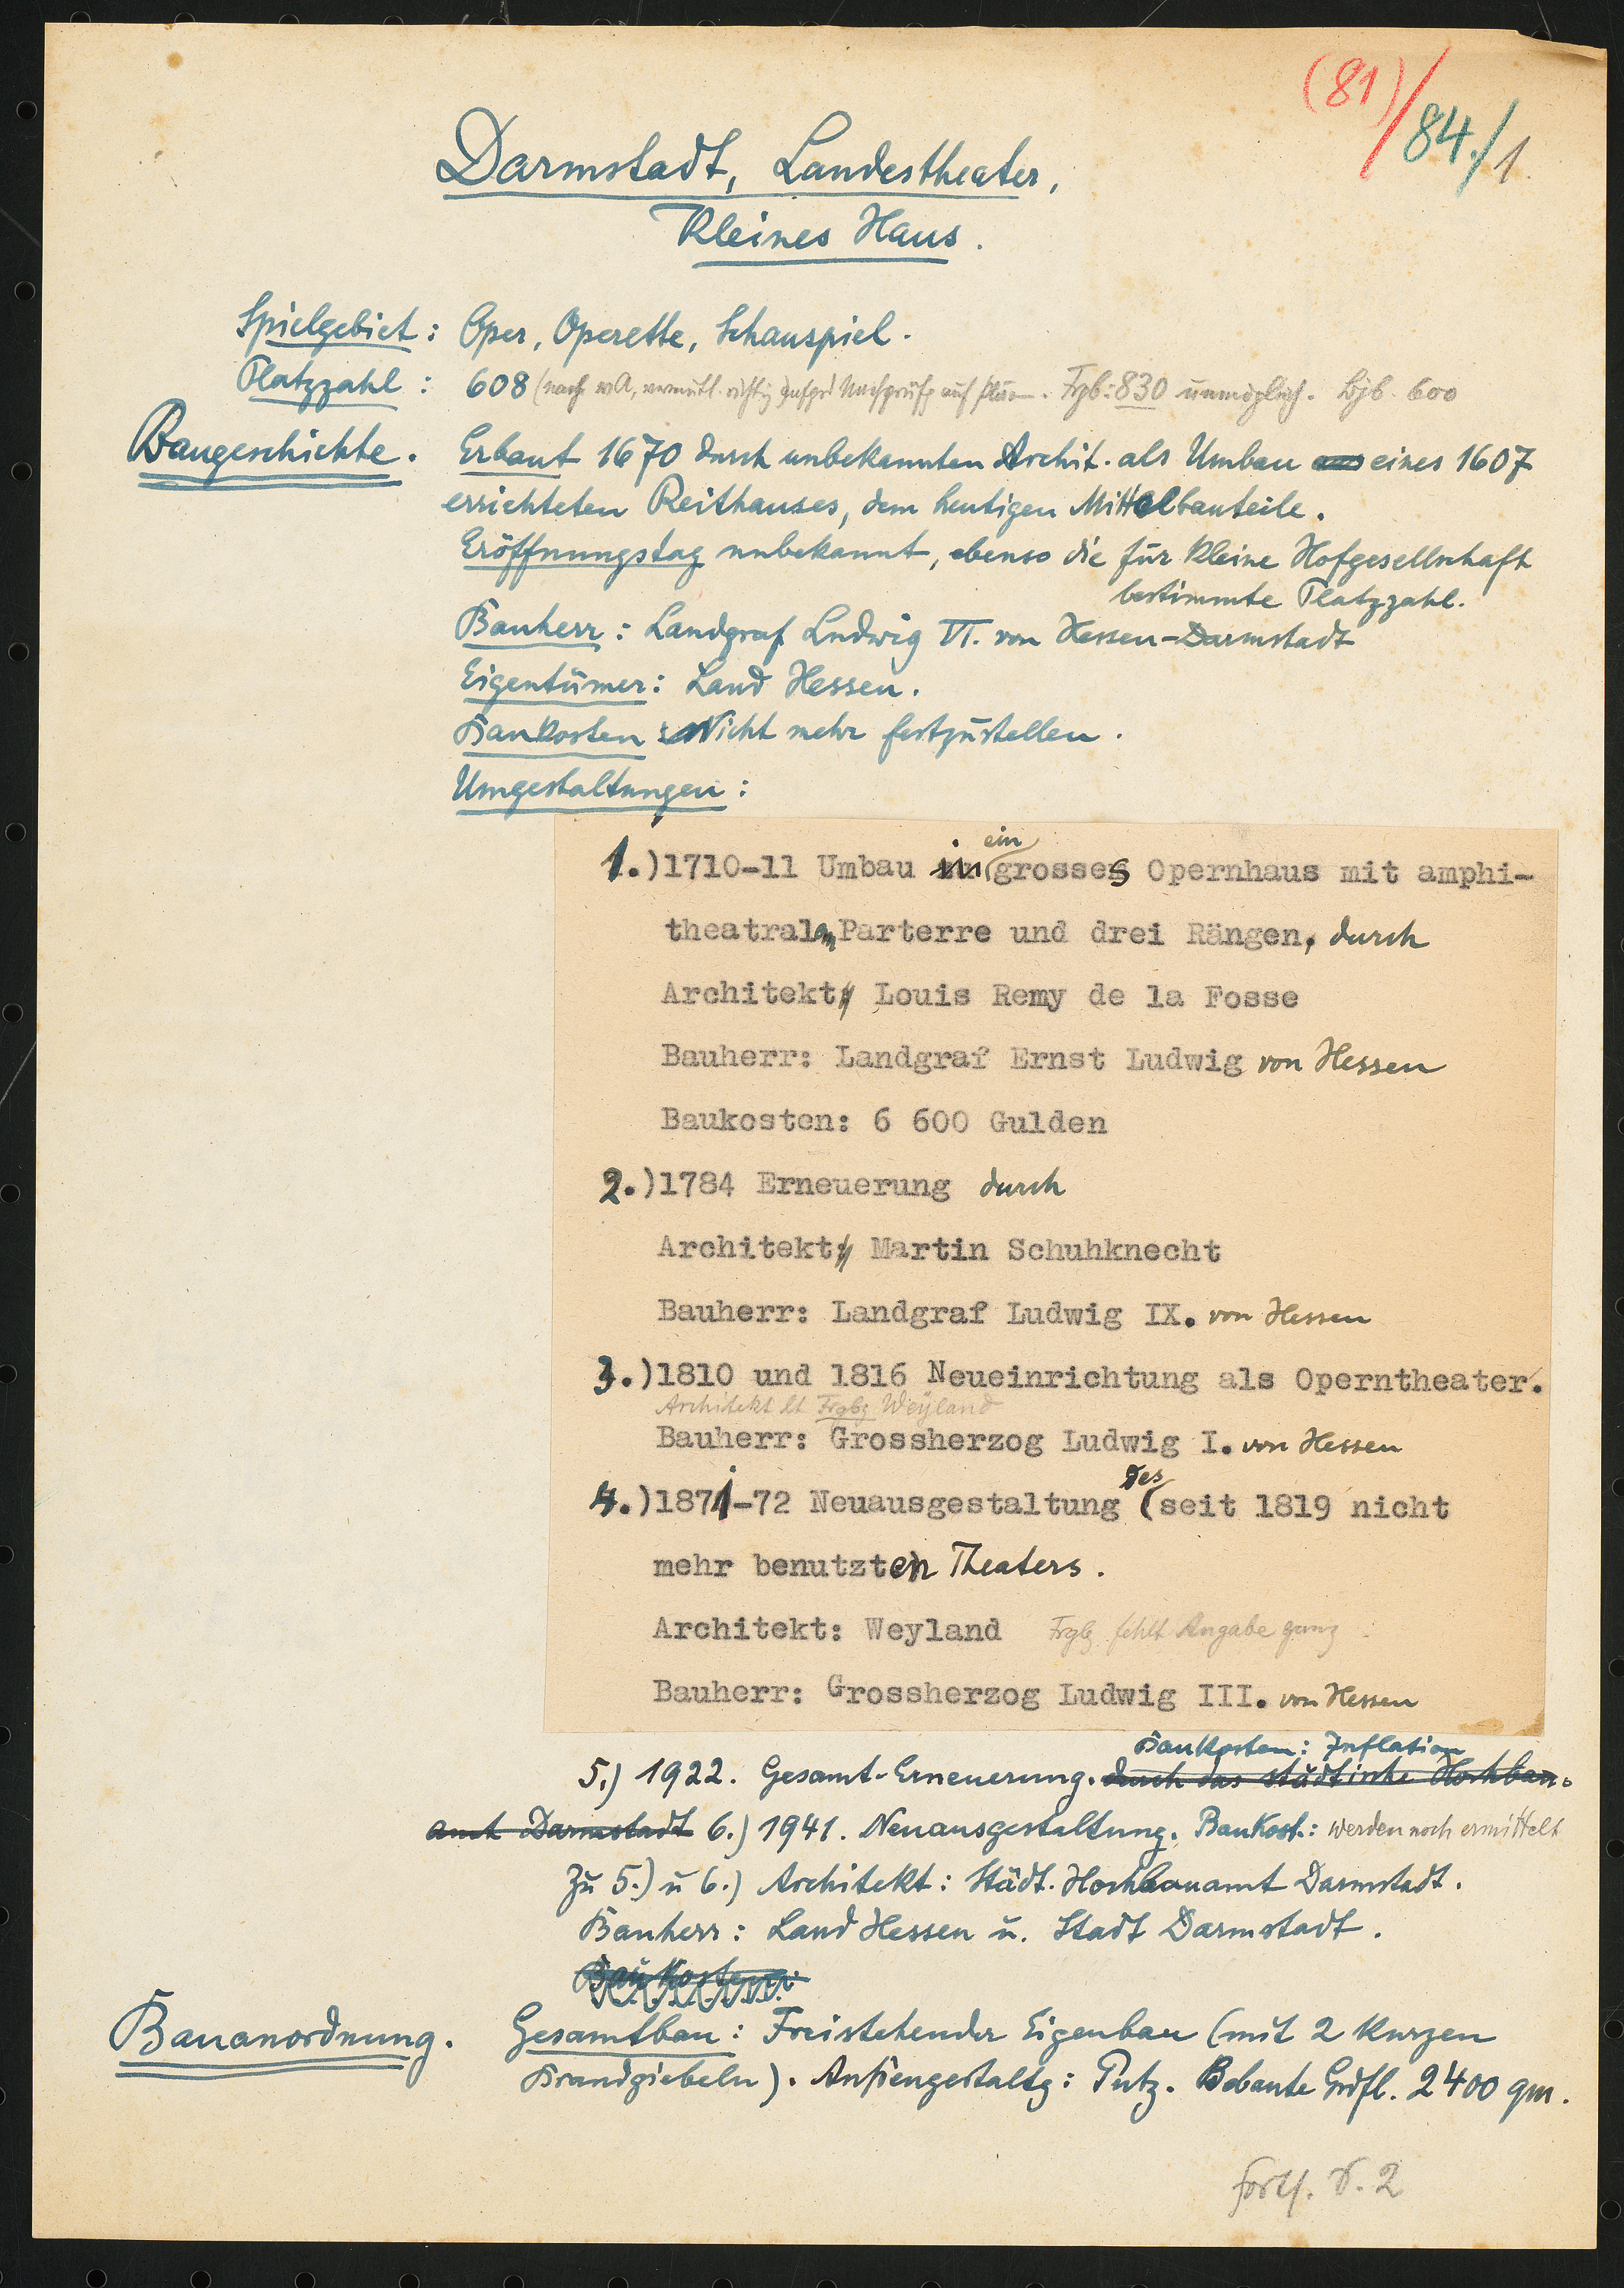 (81)/84./1
Darmstadt, Landestheater,
Kleines Haus.
Spielgebiet: Oper, Operette, Schauspiel.
Platzzahl: 608 (nach wA, vermutl. richtig Nachprüfg auf Plan. Frgb: 830 unmöglich. Bjb. 600
Baugeschichte. Erbaut 1670 durch unbekannten Archit. als Umbau eines 1607
errichteten Reithauses, dem heutigen Mittelbauteile.
Eröffnungstag unbekannt, ebenso die für kleine Hofgesellschaft
bestimmte Platzzahl.
Bauherr: Landgraf Ludwig VI. von Hessen-Darmstadt
Eigentümer: Land Hessen.
Baukosten: Nicht mehr festzustellen.
Umgestaltungen:
1.) 1710-11 Umbau in ein grosses Opernhaus mit amphi-
theatral. Parterre und drei Rängen, durch
Architekt Louis Remy de la Fosse
Bauherr: Landgraf Ernst Ludwig von Hessen
Baukosten: 6 600 Gulden
2.) 1784 Erneuerung durch
Architekt Martin Schuhknecht
Bauherr: Landgraf Ludwig IX. von Hessen
3.) 1810 und 1816 Neueinrichtung als Operntheater.
Architekt lt Frgbg Weyland
Bauherr: Grossherzog Ludwig I. von Hessen
4.) 1871-72 Neuausgestaltung des (seit 1819 nicht
mehr benutzten Theaters.
Architekt: Weyland Frgbg fehlt Angabe ganz
Bauherr: Grossherzog Ludwig III. von Hessen
Baukosten: Inflation
5.) 1922. Gesamt-Erneuerung. durch das städtische Hochbau-
amt Darmstadt 6.) 1941. Neuausgestaltung. Baukost.: werden noch ermittelt
Zu 5.) u 6.) Architekt: Städt. Hochbauamt Darmstadt.
Bauherr: Land Hessen u. Stadt Darmstadt.
Baukosten:
Bauanordnung. Gesamtbau: Freistehender Eigenbau (mit 2 kurzen
Brandgiebeln). Außengestaltg: Putz. Bebaute Grdfl. 2400 qm.
Forts. S. 2